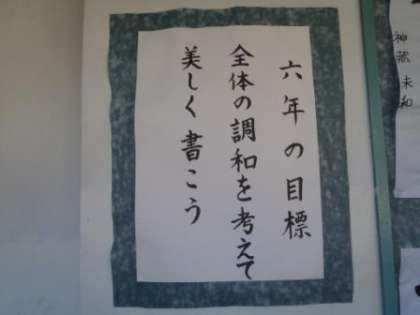 六年の目標
全体の調和を考えて
美しく書こう